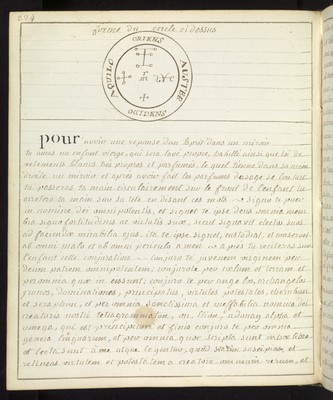 274
forme du cercle ci dessus
ORIENS
AQUILO
AUSTER
OCCIDENS
Pour avoir une reponse d'un esprit dans un miroir.
tu auras un enfant vierge, qui sera lavé propre, habillé ainsi que toi de
vetements blancs très propres et parfumés, le quel tiendra dans sa main
droite un miroir et après avoir fait les parfums d'usage
poseras ta main circulairement sur le front de l'enfant tu
mettras ta main sur sa tete en disant ces mots
in nomine dei omnipotentis, et signet te ipse deus omnia mem
bra signo fortitudinis ac virtutis suæ, sicut signavit electos suos
ad facienda mirabilia ejus, ita te ipse signet, custodiat, et conservet
ab omni malo et ab omni periculo amen
l'enfant cette conjuration conjuro te juvenem virginem per
deum patrem omnipotentem, conjuro te per cœlum et terram et
per omnia quæ in eis sunt, conjuro te per angelos, archangelos
thronos, dominationes, principatus, virtutes potestates, cherubim
et seraphim, et per omnia sanctissima et ineffabilia nomina dei
creatoris nostri tetragrammaton, on, adonay alpha et
omega, qui est principium et finis conjuro te per omnia
genera linguarum, et per omnia quæ scripta sunt in hoc libro
et lecta sunt à me, atque leguntur, quod suscipias et
retineas virtutem et potestatem a creatore omnium rerum, et